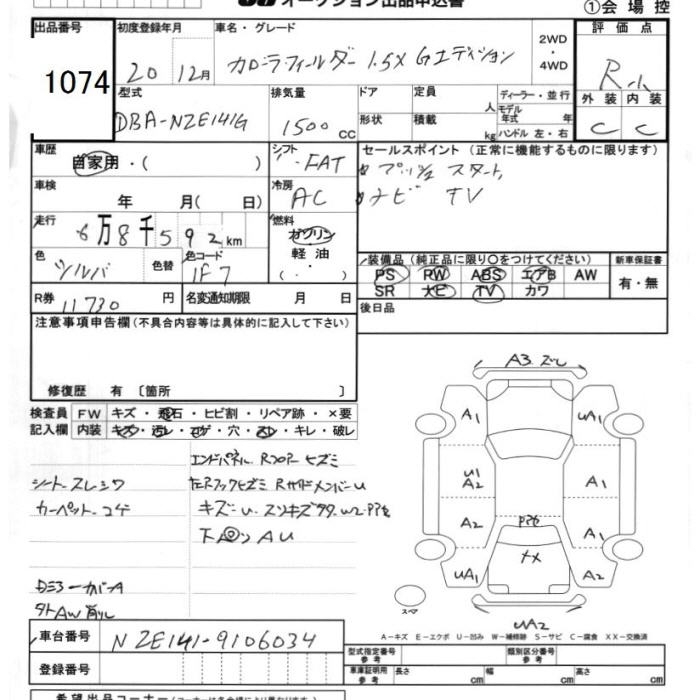 オークション出品申込書 ①会場控
出品番号 初度登録年月 車名・グレード 2WD ・ 4WD 評価点
1074 20 12月 カローラフィールダー 1.5X Gエディション R小
型式 排気量 ドア 定員 人 ディーラー・並行 外装 内装
DBA-NZE141G 1500cc 形状 積載 kg モデル年式 年 ハンドル 左・右 C C
車歴 自家用・( ) シフト FAT セールスポイント(正常に機能するものに限ります)
プッシュスタート
車検 年 月( 日) 冷房 AC ナビ TV
走行 6万8千592km 燃料 ガソリン 軽油 ( ・ )
色 シルバ 色替 色コード 1F7 装備品(純正品に限り○をつけてください) 新車保証書
PS PW ABS エアB AW 有・無
SR ナビ TV カワ
R券 11730円 名変通知期限 月 日 後日品
注意事項申告欄(不具合内容等は具体的に記入して下さい)
修復歴 有 〔箇所 〕
検査員記入欄 FW キズ・飛石・ヒビ割・リペア跡・×要
内装 キズ・汚レ・コゲ・穴・スレ・キレ・破レ
エンドパネル Rフロアー ヒズミ
シートスレシワ 左Rフックヒズミ RサイドメンバーU
カーペットコゲ キズ
下 AU
カバーA
AW
A3 ズレ
A1 UA1
U1 A2 A1
A2 A1
UA1 A2
UA2
スペア
A-キズ E-エクボ U-凹み W-補修跡 S-サビ C-腐食 XX-交換済
車台番号 NZE141-9106034
型式指定番号 参考 類別区分番号 参考
登録番号 車庫証明用 参考 長さ cm 幅 cm 高さ cm
希望出品コーナー